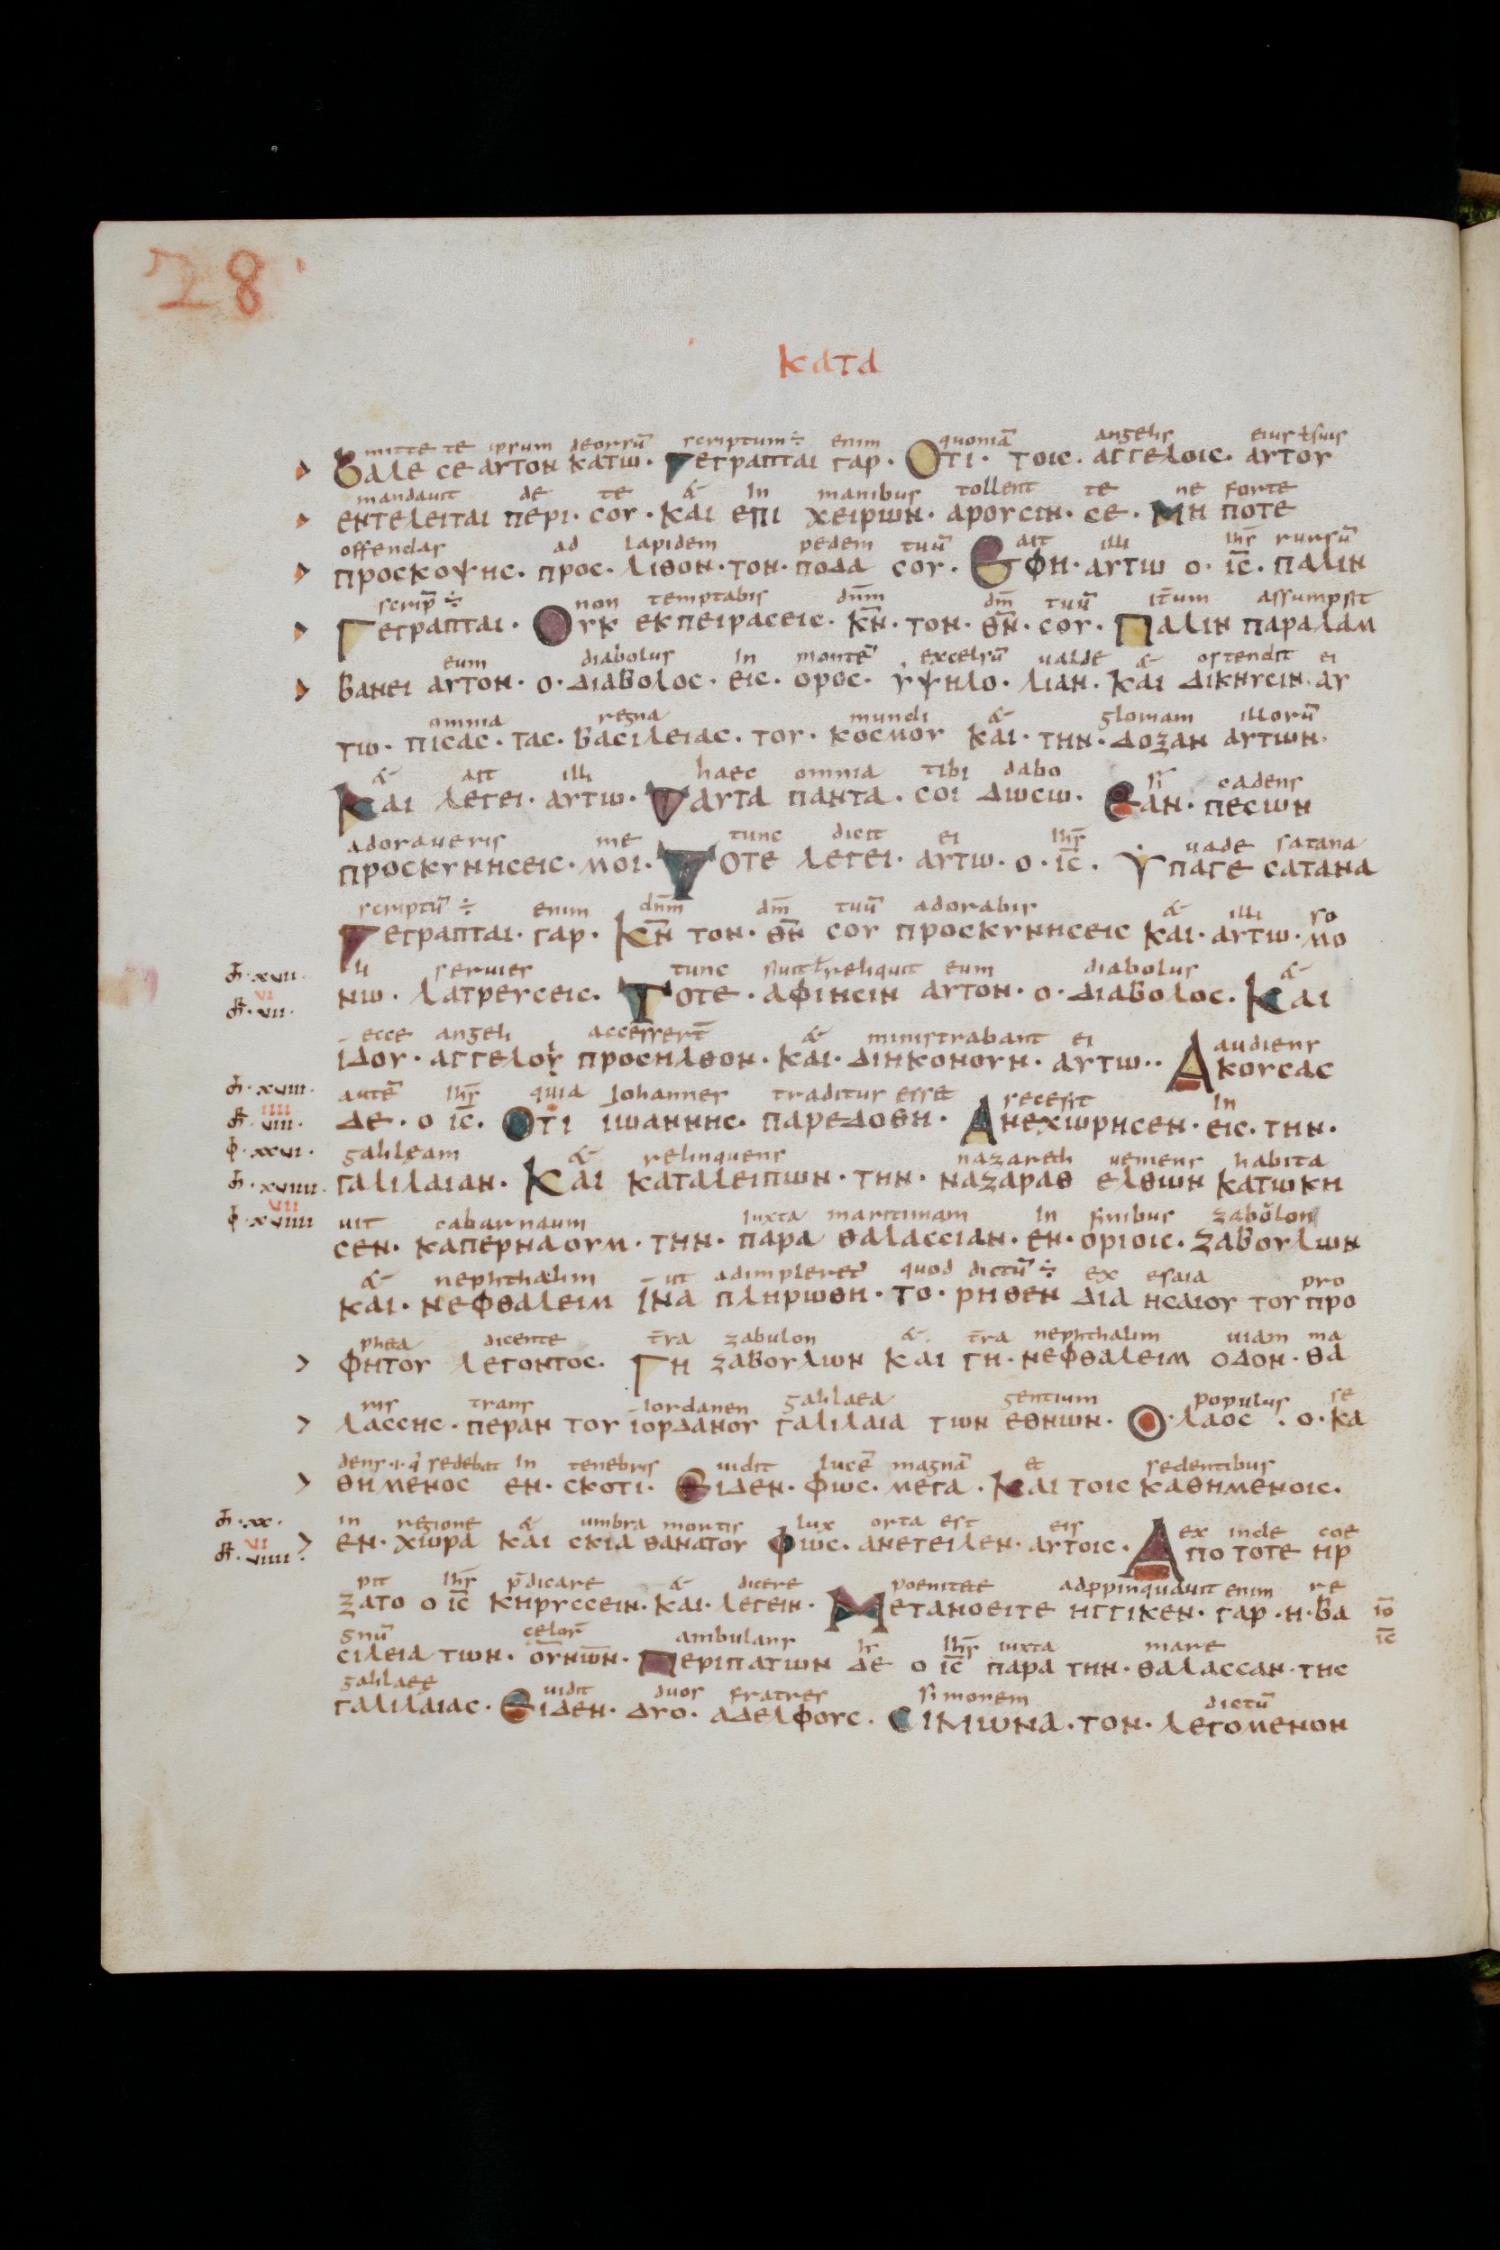 28
κατα
mitte te ipsum deorsū scriptum ÷ enim quoniā angelis eius ł suis
βαλε σε αυτον κατω· γεγραπται γαρ· Οτι· τοις· αγγελοις· αυτου
mandauit de te & in manibus tollent te ne forte
εντελειται περι· σου· και επι χειρων· αρουσιν· σε· Μη ποτε
offendas ad lapidem pedem tuū ait illi ihs̄ rursū
προσκοψης· προς· λιθον· τον· ποδα σου· Εφη· αυτω ο· ις̄· παλιν
scrip̄ ÷ non temptabis dn̄m dm̄ tuū it̄um assumpsit
Γεγραπται· Ουκ εκπειρασεις· κν̄· τον· θν̄· σου· Παλιν παραλαμ
eum diabolus in montē excelsū ualde & ostendit ei
βανει αυτον· ο· διαβολος· εις· ορος· υψηλο· λιαν· και δικνυσιν· αυ
omnia regna mundi & gloriam illorū
τω· πισας· τας· βασιλειας· του· κοσμου και· την· δοξαν αυτων·
& ait illi haec omnia tibi dabo si cadens
Και λεγει· αυτω· Ταυτα παντα· σοι δωσω· Εαν· πεσων
adoraueris me tunc dicit ei ihs̄ uade satana
προσκυνησεις· μοι· Τοτε λεγει· αυτω· ο· ις̄· Υπαγε σατανα
scriptū ÷ enim dn̄m dm̄ tuū adorabis & illi so
Γεγραπται· γαρ· Κν̄ τον· θν̄ σου προσκυνησεις και· αυτω· μο
xvii· li seruies tunc sinit ł reliquit eum diabolus &
vi vii· νω· λατρευσεις· Τοτε· αφιησιν αυτον· ο· διαβολος· Και
ecce angeli accesserūt & ministrabant ei audiens
ιδου· αγγελοι προσηλθον· και· διηκονουν· αυτω·· Ακουσας
xviii· autē ihs̄ quia Iohannes traditus esset secessit in
iiii viii· δε· ο ις̄· Οτι ιωαννης· παρεδοθη· Ανεχωρησεν· εις· την·
xxvi· galileam & relinquens nazareth ueniens habita
xviiii· γαλιλαιαν· Και καταλειπων· την· ναζαραθ ελθων κατωκη
vii xviiii uit cabarnaum iuxta maritimam in finibus zabulon
σεν· καπερναουμ· την· παρα θαλασσιαν· εν· οριοις· ζαβουλων
& nephthalim ut adimpleret quod dictū ÷ ex esaia pro
και· νεφθαλειμ ινα πληρωθη· το· ρηθεν δια ησαιου του προ
pheta dicente t̄ra zabulon & t̄ra nephthalim uiam ma
φητου λεγοντος· Γη ζαβουλων και γη· νεφθαλειμ οδον· θα
ris trans iordanen galilaea gentium populus se
λασσης· περαν του ιορδανου γαλιλαια των εθνων· Ο· λαος· ο· κα
dens ·i· q̄ sedebat in tenebris uidit lucē magnā et sedentibus
θημενος εν· σκοτι· Ειδεν· φως· μεγα· Και τοις καθημενοις·
xx· in regione & umbra mortis lux orta est eis ex inde coe
vi viiii· εν· χωρα και σκια θανατου φως· ανετειλεν· αυτοις· Απο τοτε ηρ
pit ihs̄ p̄dicare & dicere poenitete adppinquauit enim re
ζατο ο ις̄ κηρυσσειν· και· λεγειν· Μετανοειτε ηγγικεν· γαρ· η· βα ιο̄
gnū celor̄ ambulans ihs̄ iuxta mare ις̄
σιλεια των· ουρ̄νων̄· Περιπατων δε ο ις̄ παρα την· θαλασσαν· της
galilaee uidit duos fratres simonem dictū
γαλιλαιας· Ειδεν· δυο· αδελφους· Σιμωνα· τον· λεγομενον